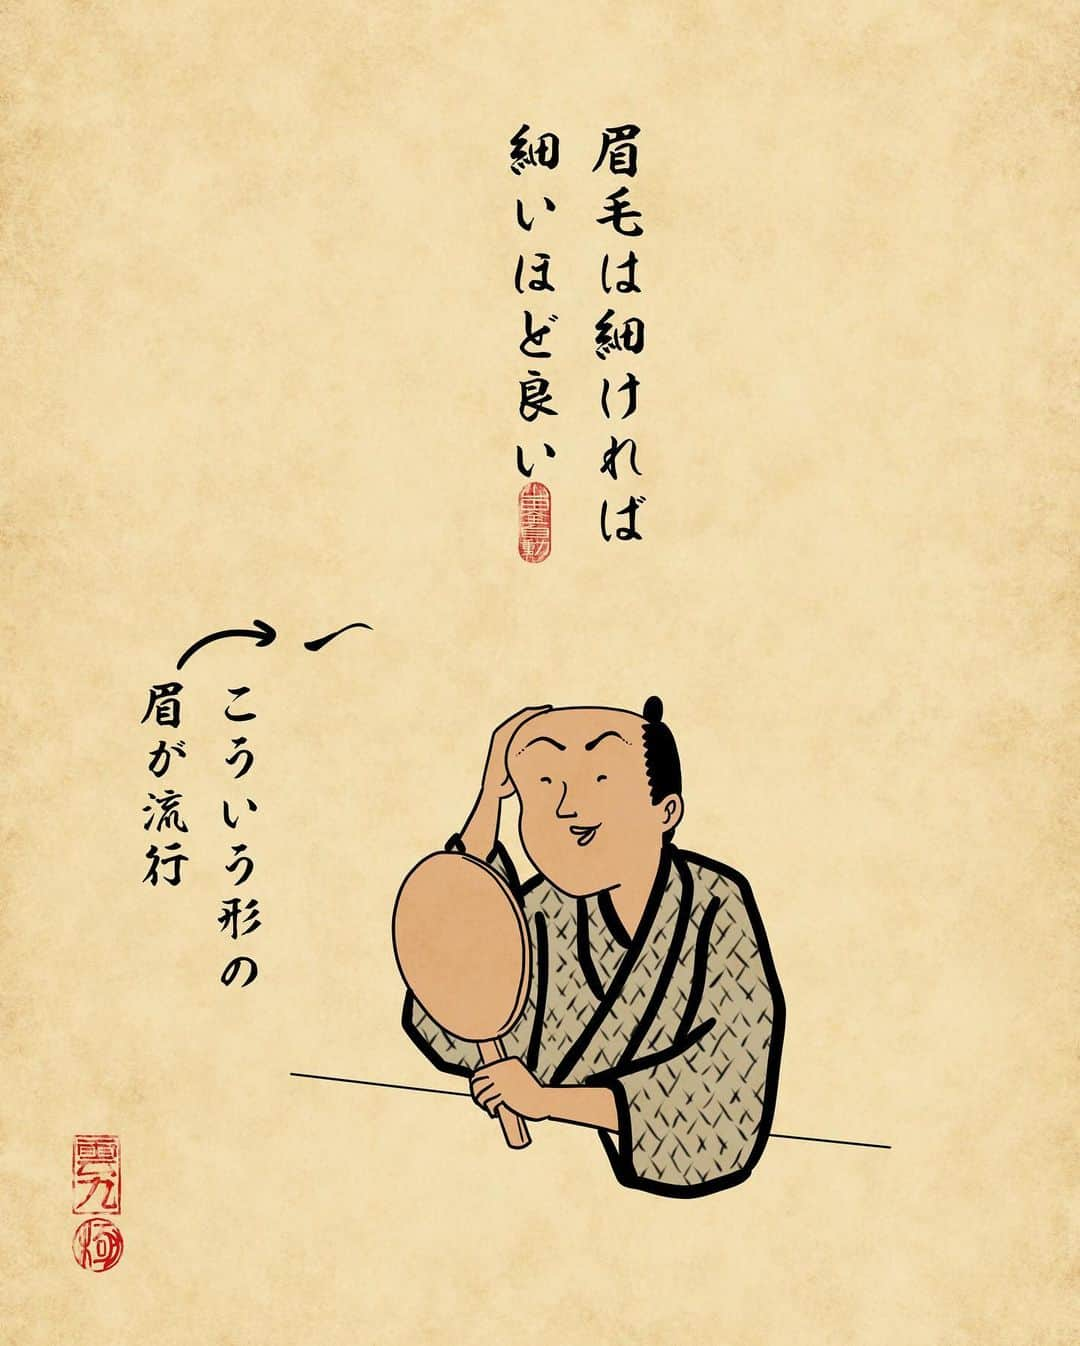 眉毛は細ければ
細いほど良い
こういう形の
眉が流行